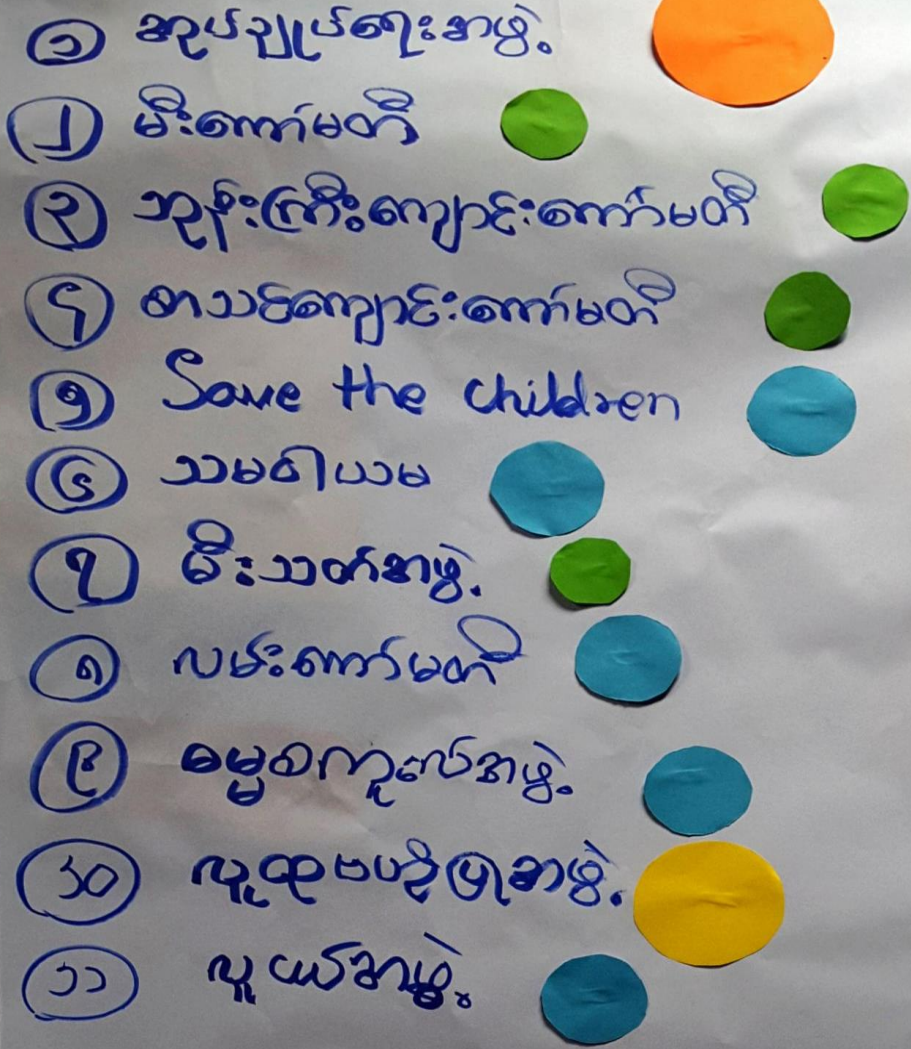 ၁ အုပ်ချုပ်ရေးအဖွဲ့
၂ မီးကော်မတီ
၃ ဘုန်းကြီးကျောင်းကော်မတီ
၄ စာသင်ကျောင်းကော်မတီ
၅ Save the children
၆ သမဝါယမ
၇ မီးသတ်အဖွဲ့
၈ လမ်းကော်မတီ
၉ ဓမ္မစကူလ်အဖွဲ့
၁၀ လူထုဗဟိုပြုအဖွဲ့
၁၁ လူငယ်အဖွဲ့